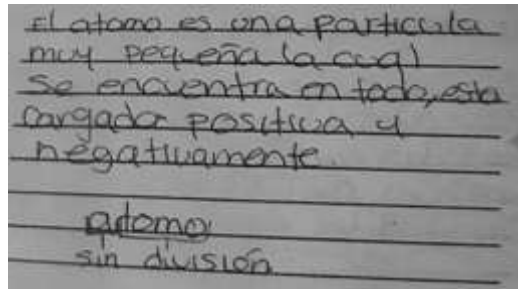 El atomo es una particula
muy pequeña la cual
se encuentra en todo, esta
cargada positiva y
negativamente.
atomo
sin división